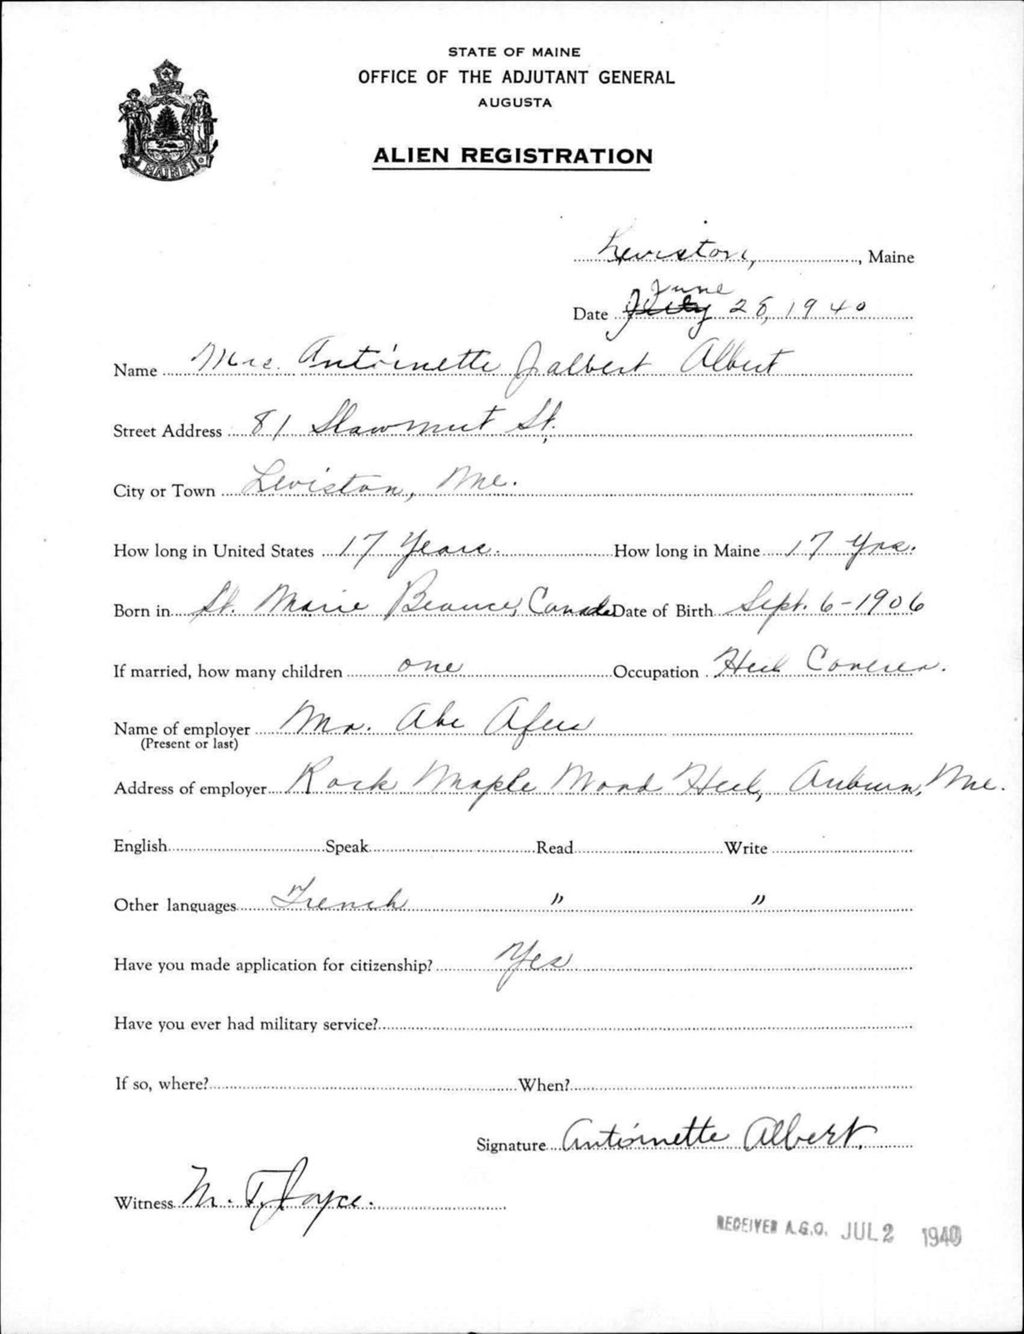 STATE OF MAINE
OFFICE OF THE ADJUTANT GENERAL
AUGUSTA
ALIEN REGISTRATION
MAINE
Lewiston, Maine
June
Date July 28, 1940
Name Mrs. Antoinette Jalbert Albert
Street Address 81 Shawmut St.
City or Town Lewiston, Me.
How long in United States 17 Years. How long in Maine 17 Yrs.
Born in St. Marie Beauce, Canada Date of Birth Sept. 6-1906
If married, how many children one Occupation Heel Coverer.
Name of employer Mr. Abe
(Present or last)
Address of employer Rock Maple Wood Heel, Auburn, Me.
English Speak Read Write
Other languages French " "
Have you made application for citizenship? Yes
Have you ever had military service?
If so, where? When?
Signature Antoinette Albert.
Witness M. T. Joyce.
RECEIVED A.G.O. JUL 2 1940